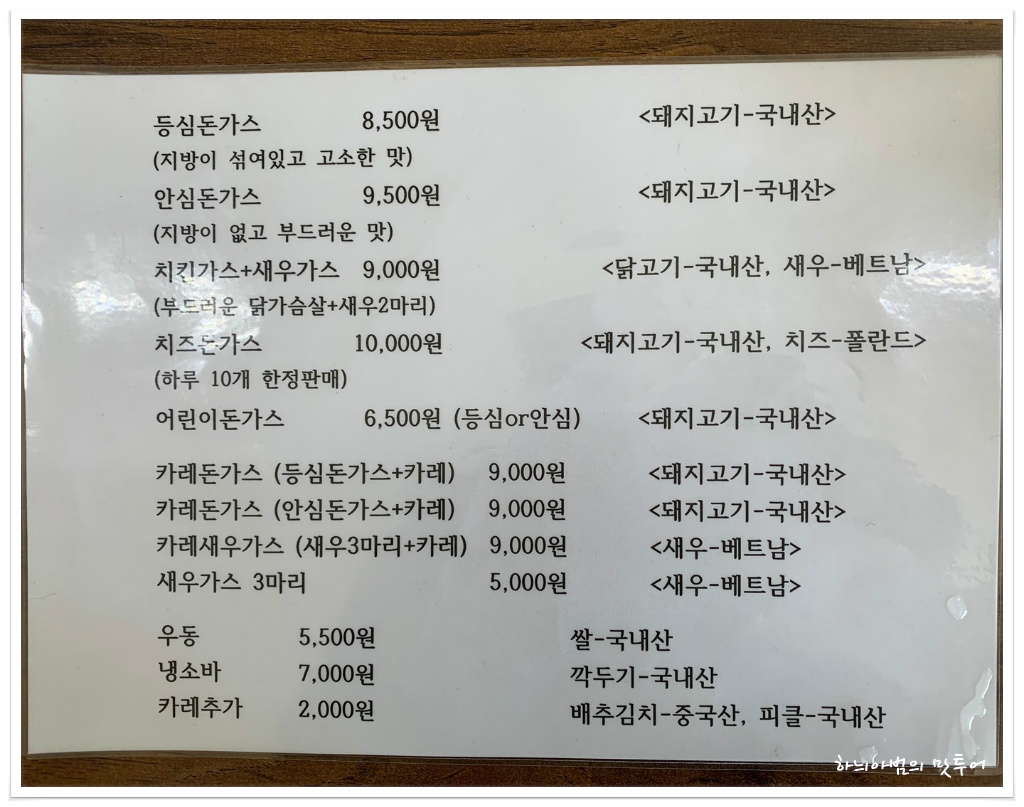 등심돈가스 8,500원 <돼지고기-국내산>
(지방이 섞여있고 고소한 맛)
안심돈가스 9,500원 <돼지고기-국내산>
(지방이 없고 부드러운 맛)
치킨가스+새우가스 9,000원 <닭고기-국내산, 새우-베트남>
(부드러운 닭가슴살+새우2마리)
치즈돈가스 10,000원 <돼지고기-국내산, 치즈-폴란드>
(하루 10개 한정판매)
어린이돈가스 6,500원 (등심or안심) <돼지고기-국내산>
카레돈가스 (등심돈가스+카레) 9,000원 <돼지고기-국내산>
카레돈가스 (안심돈가스+카레) 9,000원 <돼지고기-국내산>
카레새우가스 (새우3마리+카레) 9,000원 <새우-베트남>
새우가스 3마리 5,000원 <새우-베트남>
우동 5,500원 쌀-국내산
냉소바 7,000원 깍두기-국내산
카레추가 2,000원 배추김치-중국산, 피클-국내산
하늬아범의 맛투어